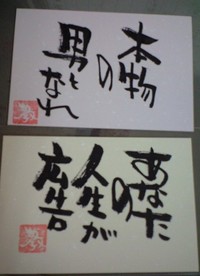 本物
の
男と
なれ
あなた
の
人生が
広告